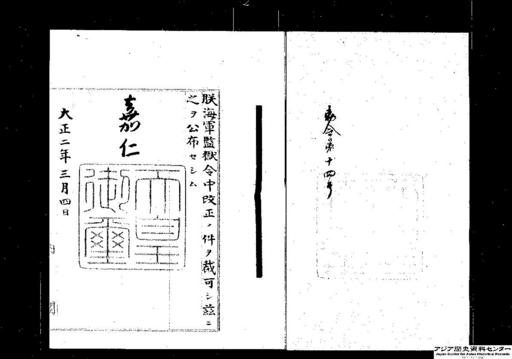 勅令第十四号
朕海軍監獄令中改正ノ件ヲ裁可シ茲ニ
之ヲ公布セシム
嘉仁
天皇御璽
大正二年三月四日
内閣
アジア歴史資料センター
Japan Center for Asian Historical Records